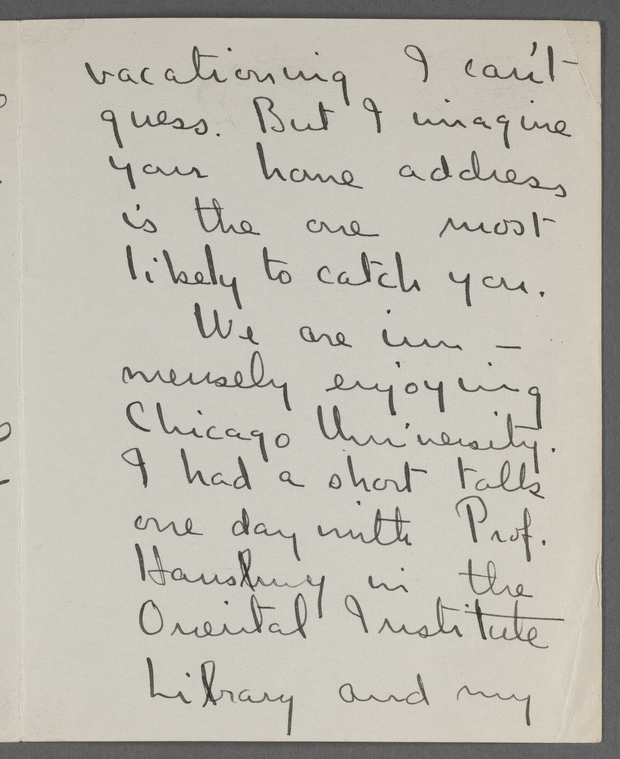 vacationing I can't
guess. But I imagine
your home address
is the one most
likely to catch you.
We are imm -
mensely enjoying
Chicago University.
I had a short talk
one day with Prof.
Hansbury in the
Oriental Institute
Library and my